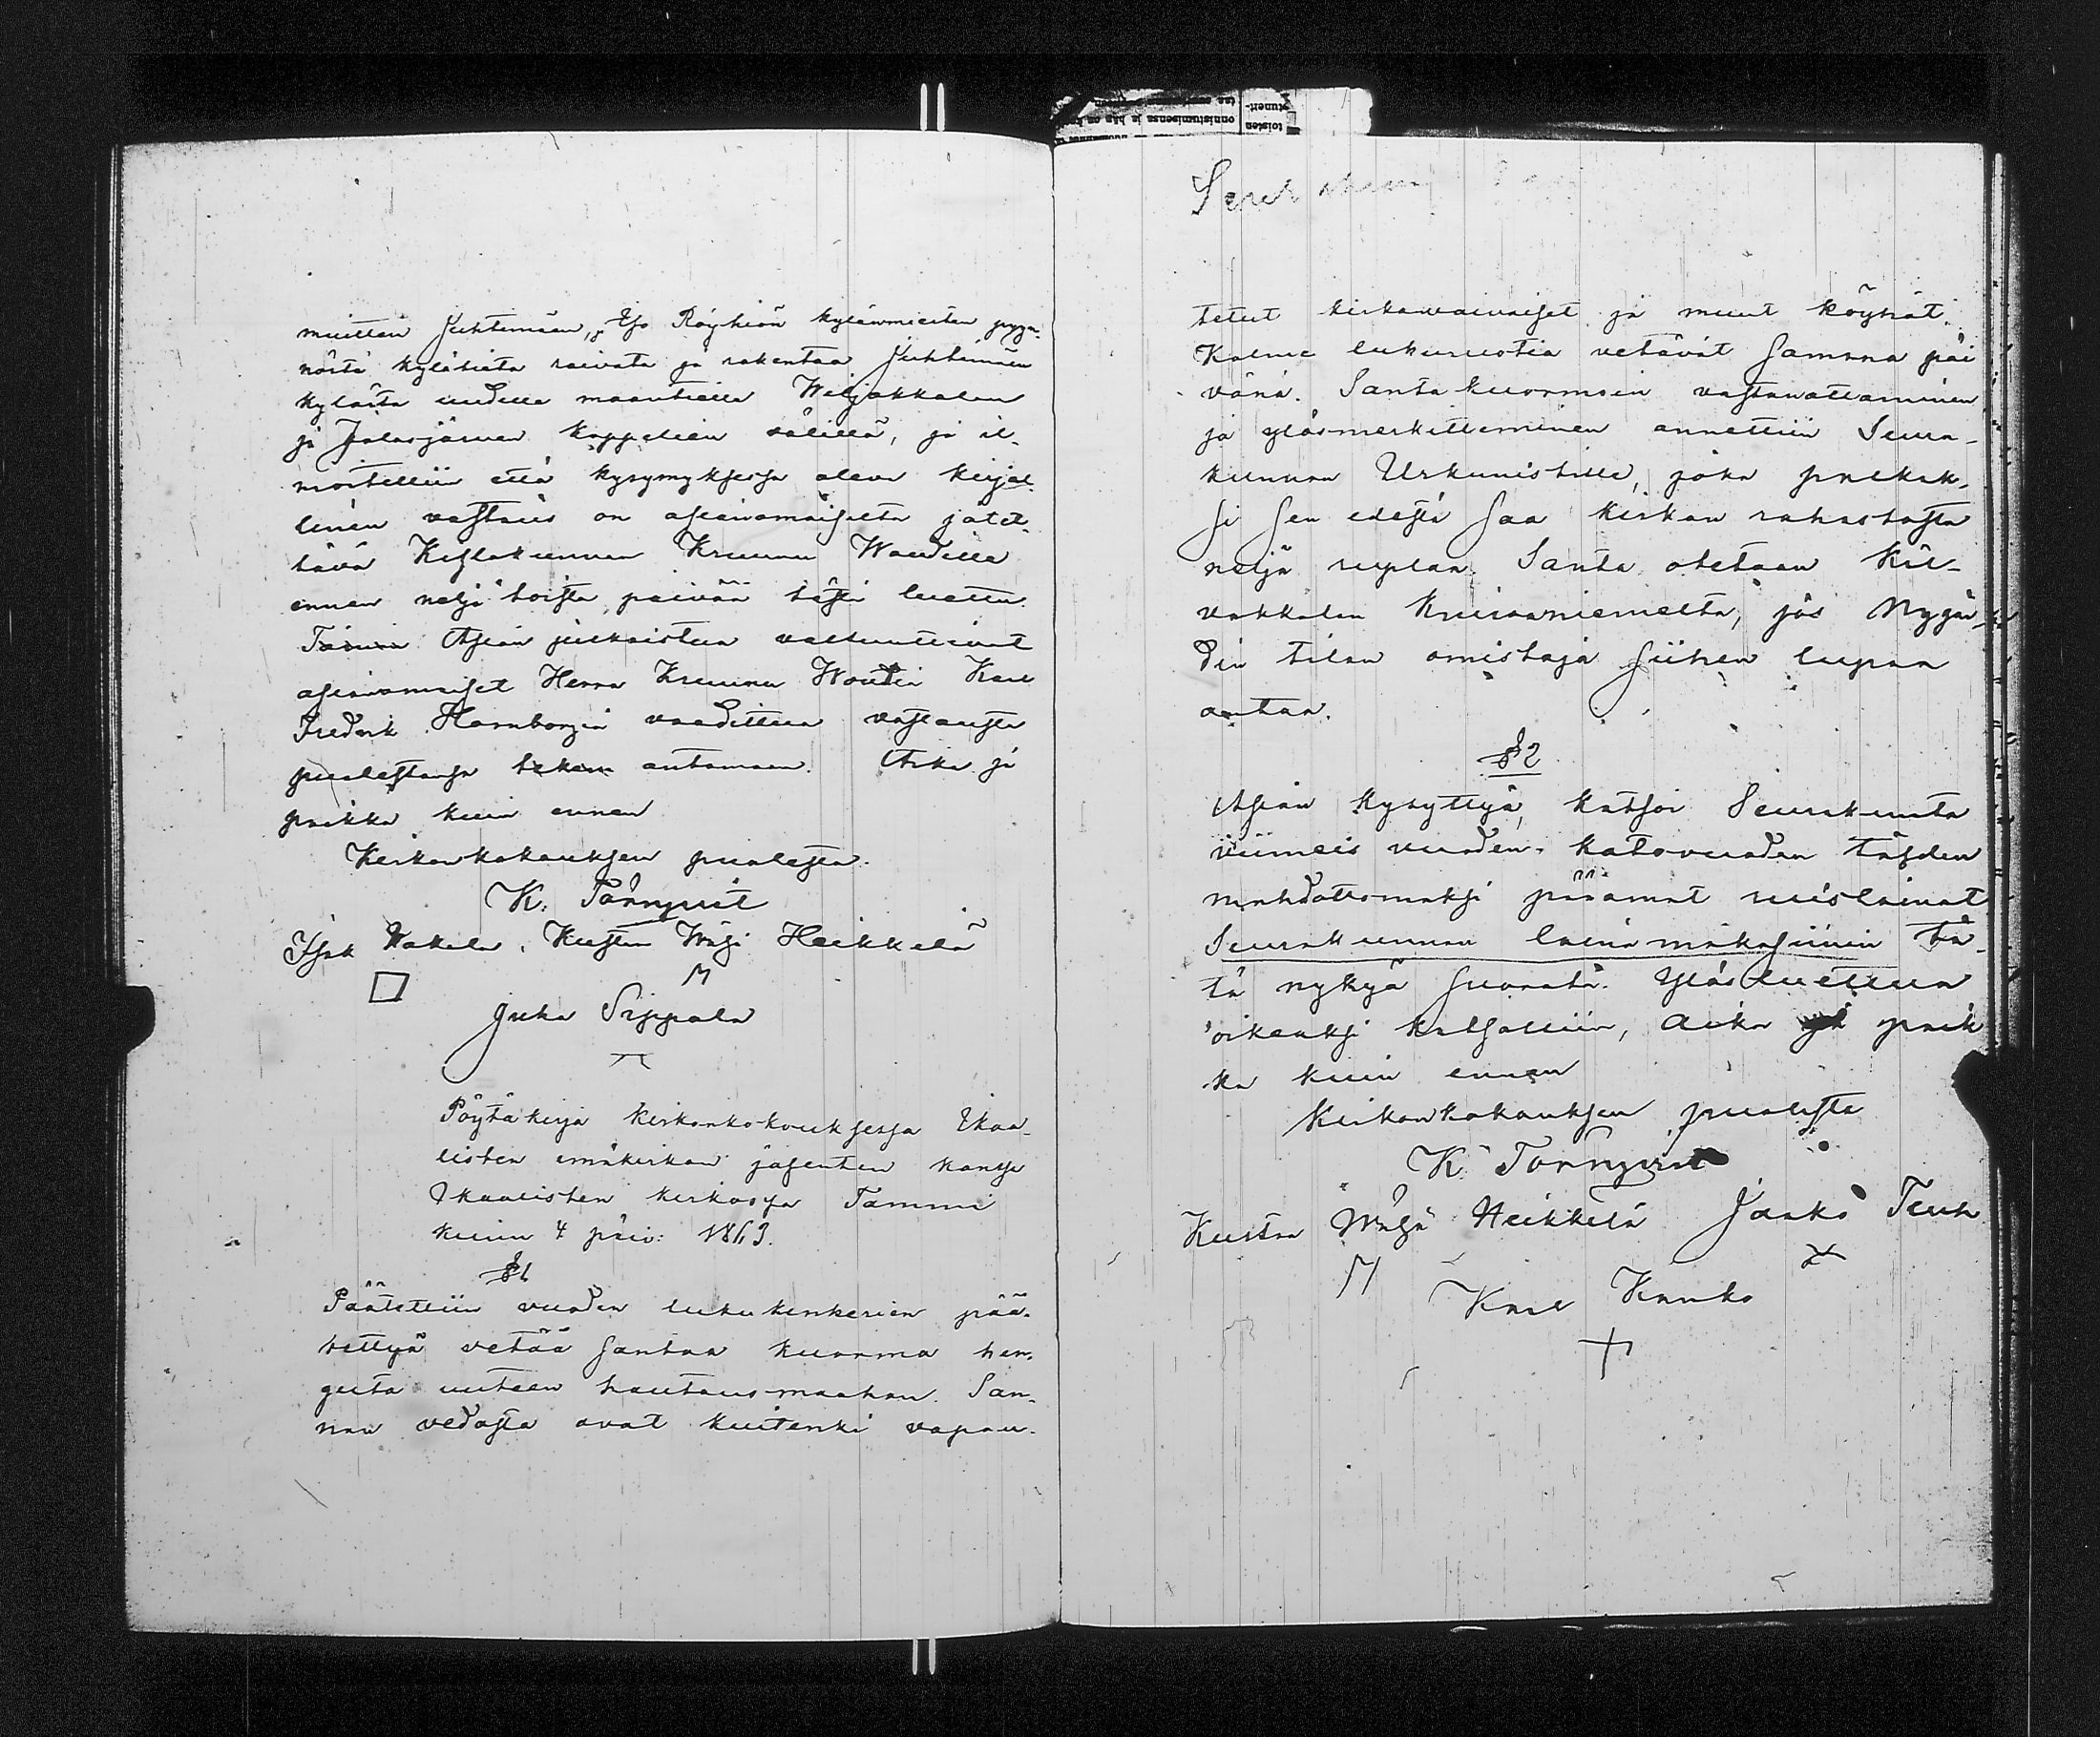 muitten Juhtimäen, ja Röyhiön kylänmiesten pyyn-
nöstä kyläntietä raivata ja rakentaa Juhtimäen
kylästä uudelle maantielle Wiljakkalan
ja Jalasjärven kappelien välillä, ja il-
moitettiin että kysymyksessä oleva kirjal-
linen vastaus on asianomaisilta jätet-
tävä Kihlakunnan Kruunu Woudille
ennen neljätoista päivää tästä luettu.
Tämän Asian julkaistua valtuutivat
asianomaiset Herra Kruunu Woudin Karl
Fredrik Hornborgin vaadittua vastausta
puolestansa antamaan. Aika ja
paikka kuin ennen
Kirkonkokouksen puolesta.
K. Törnqvist
Isak Kustaa Wäha Heikkilä
M
Juha Sippala
Pöytäkirja kirkonkokouksessa Ikaa-
listen emäkirkon jäsenten kanssa
Ikaalisten kirkossa Tammi
kuun 4 päiv: 1863.
§1
Päätettiin vuoden lukukinkerien pää-
tettyä vetää santaa kuorma hen-
geltä uuteen hautausmaahan. San-
nan vedosta ovat kuitenki vapau-
tetut kirkonvaivaiset ja muut köyhät.
Kolme lukuruotia vetävät samana päi
vänä. Santakuormain vastanottaminen
ja ylösmerkitteminen annettiin Seura-
kunnan Urkunistille, joka palkak-
si sen edestä saa kirkon rahastosta
neljä ruplaa. Santa otetaan Kil-
vakkalan Kruunniemeltä, jos Nygår-
din tilan omistaja siihen lupaa
antaa.
§2
Asian kysyttyä, katsoi Seurakunta
viimeis vuoden katovuoden tähden
mahdottomaksi paraamat ruislainat
Seurakunnan laina makasiiniin tä-
tä nykyä suorata. Ylösluettua
oikeaksi katsottiin, Aika ja paik
ka kuin ennen
Kirkonkokouksen puolesta
K. Törnqvist
Kustaa Wäha Heikkilä Jaako
M
Karl